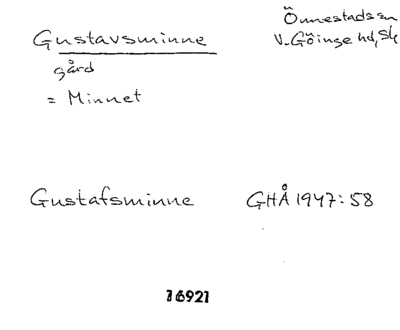 Gustavsminne
Önnestads sn
V. Göinge hd, Sk
gård
= Minnet
Gustafsminne GHÅ 1947:58
16921